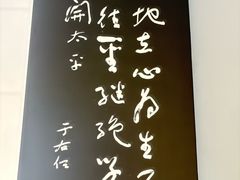 地立心為生
往聖繼絕學
開太平
于右任